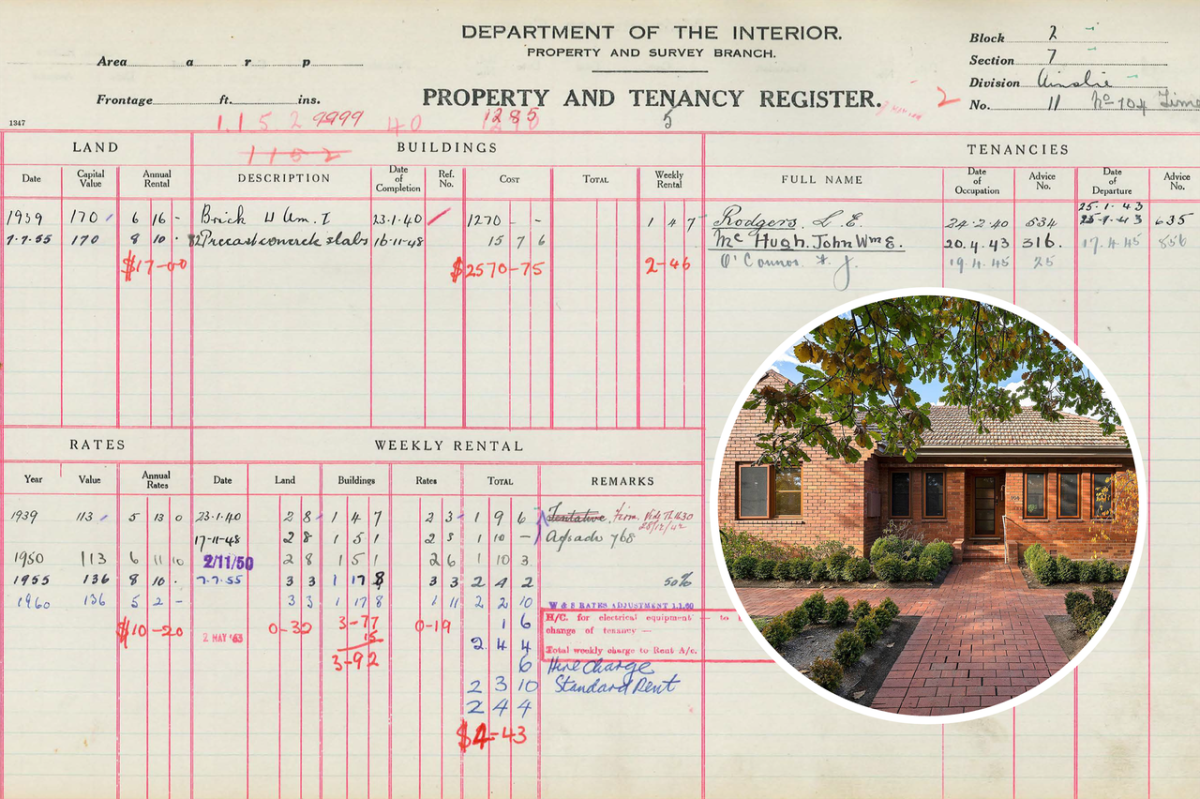 DEPARTMENT OF THE INTERIOR.
PROPERTY AND SURVEY BRANCH.
Block 2
Section 7
Division Ainslie
No. 11 No 104
Area a r p
Frontage ft. ins.
PROPERTY AND TENANCY REGISTER.
2
5
1347
1152 9999 40 1285
1152
LAND BUILDINGS TENANCIES
Date Capital Value Annual Rental DESCRIPTION Date of Completion Ref. No. COST TOTAL Weekly Rental FULL NAME Date of Occupation Advice No. Date of Departure Advice No.
25.1.43
1939 170 6 16 - Brick 23.1.40 1270 - - 1 4 7 Rodgers L. E. 24.2.40 534 25.1.43 635
7.7.55 170 8 10 . Precast concrete slabs 16.11.48 15 7 6 Mc Hugh. John Wm E. 20.4.43 316. 17.4.45 856
$17-00 $2570-75 2-46 O'Connor 19.4.45 25
RATES WEEKLY RENTAL
Year Value Annual Rates Date Land Buildings Rates TOTAL REMARKS
1939 113 5 13 0 23.1.40 2 8 1 4 7 2 3 1 9 6 Tentative Firm.
17-11-48 2 8 1 5 1 2 3 1 10 - 768
1950 113 6 11 10 2/11/50 2 8 1 5 1 2 6 1 10 3
1955 136 8 10 . 7.7.55 3 3 1 17 8 3 3 2 4 2 50%
1960 136 5 2 - 3 3 1 17 8 1 11 2 2 10 W & S RATES ADJUSTMENT 1.1.60
$10-20 2 MAY '63 0-32 3-77 0-19 1 6 H/C. for electrical equipment — to
15 change of tenancy —
3-92 2 4 4 Total weekly charge to Rent A/c.
6 Hire Charge
2 3 10 Standard Rent
2 4 4
$4-43